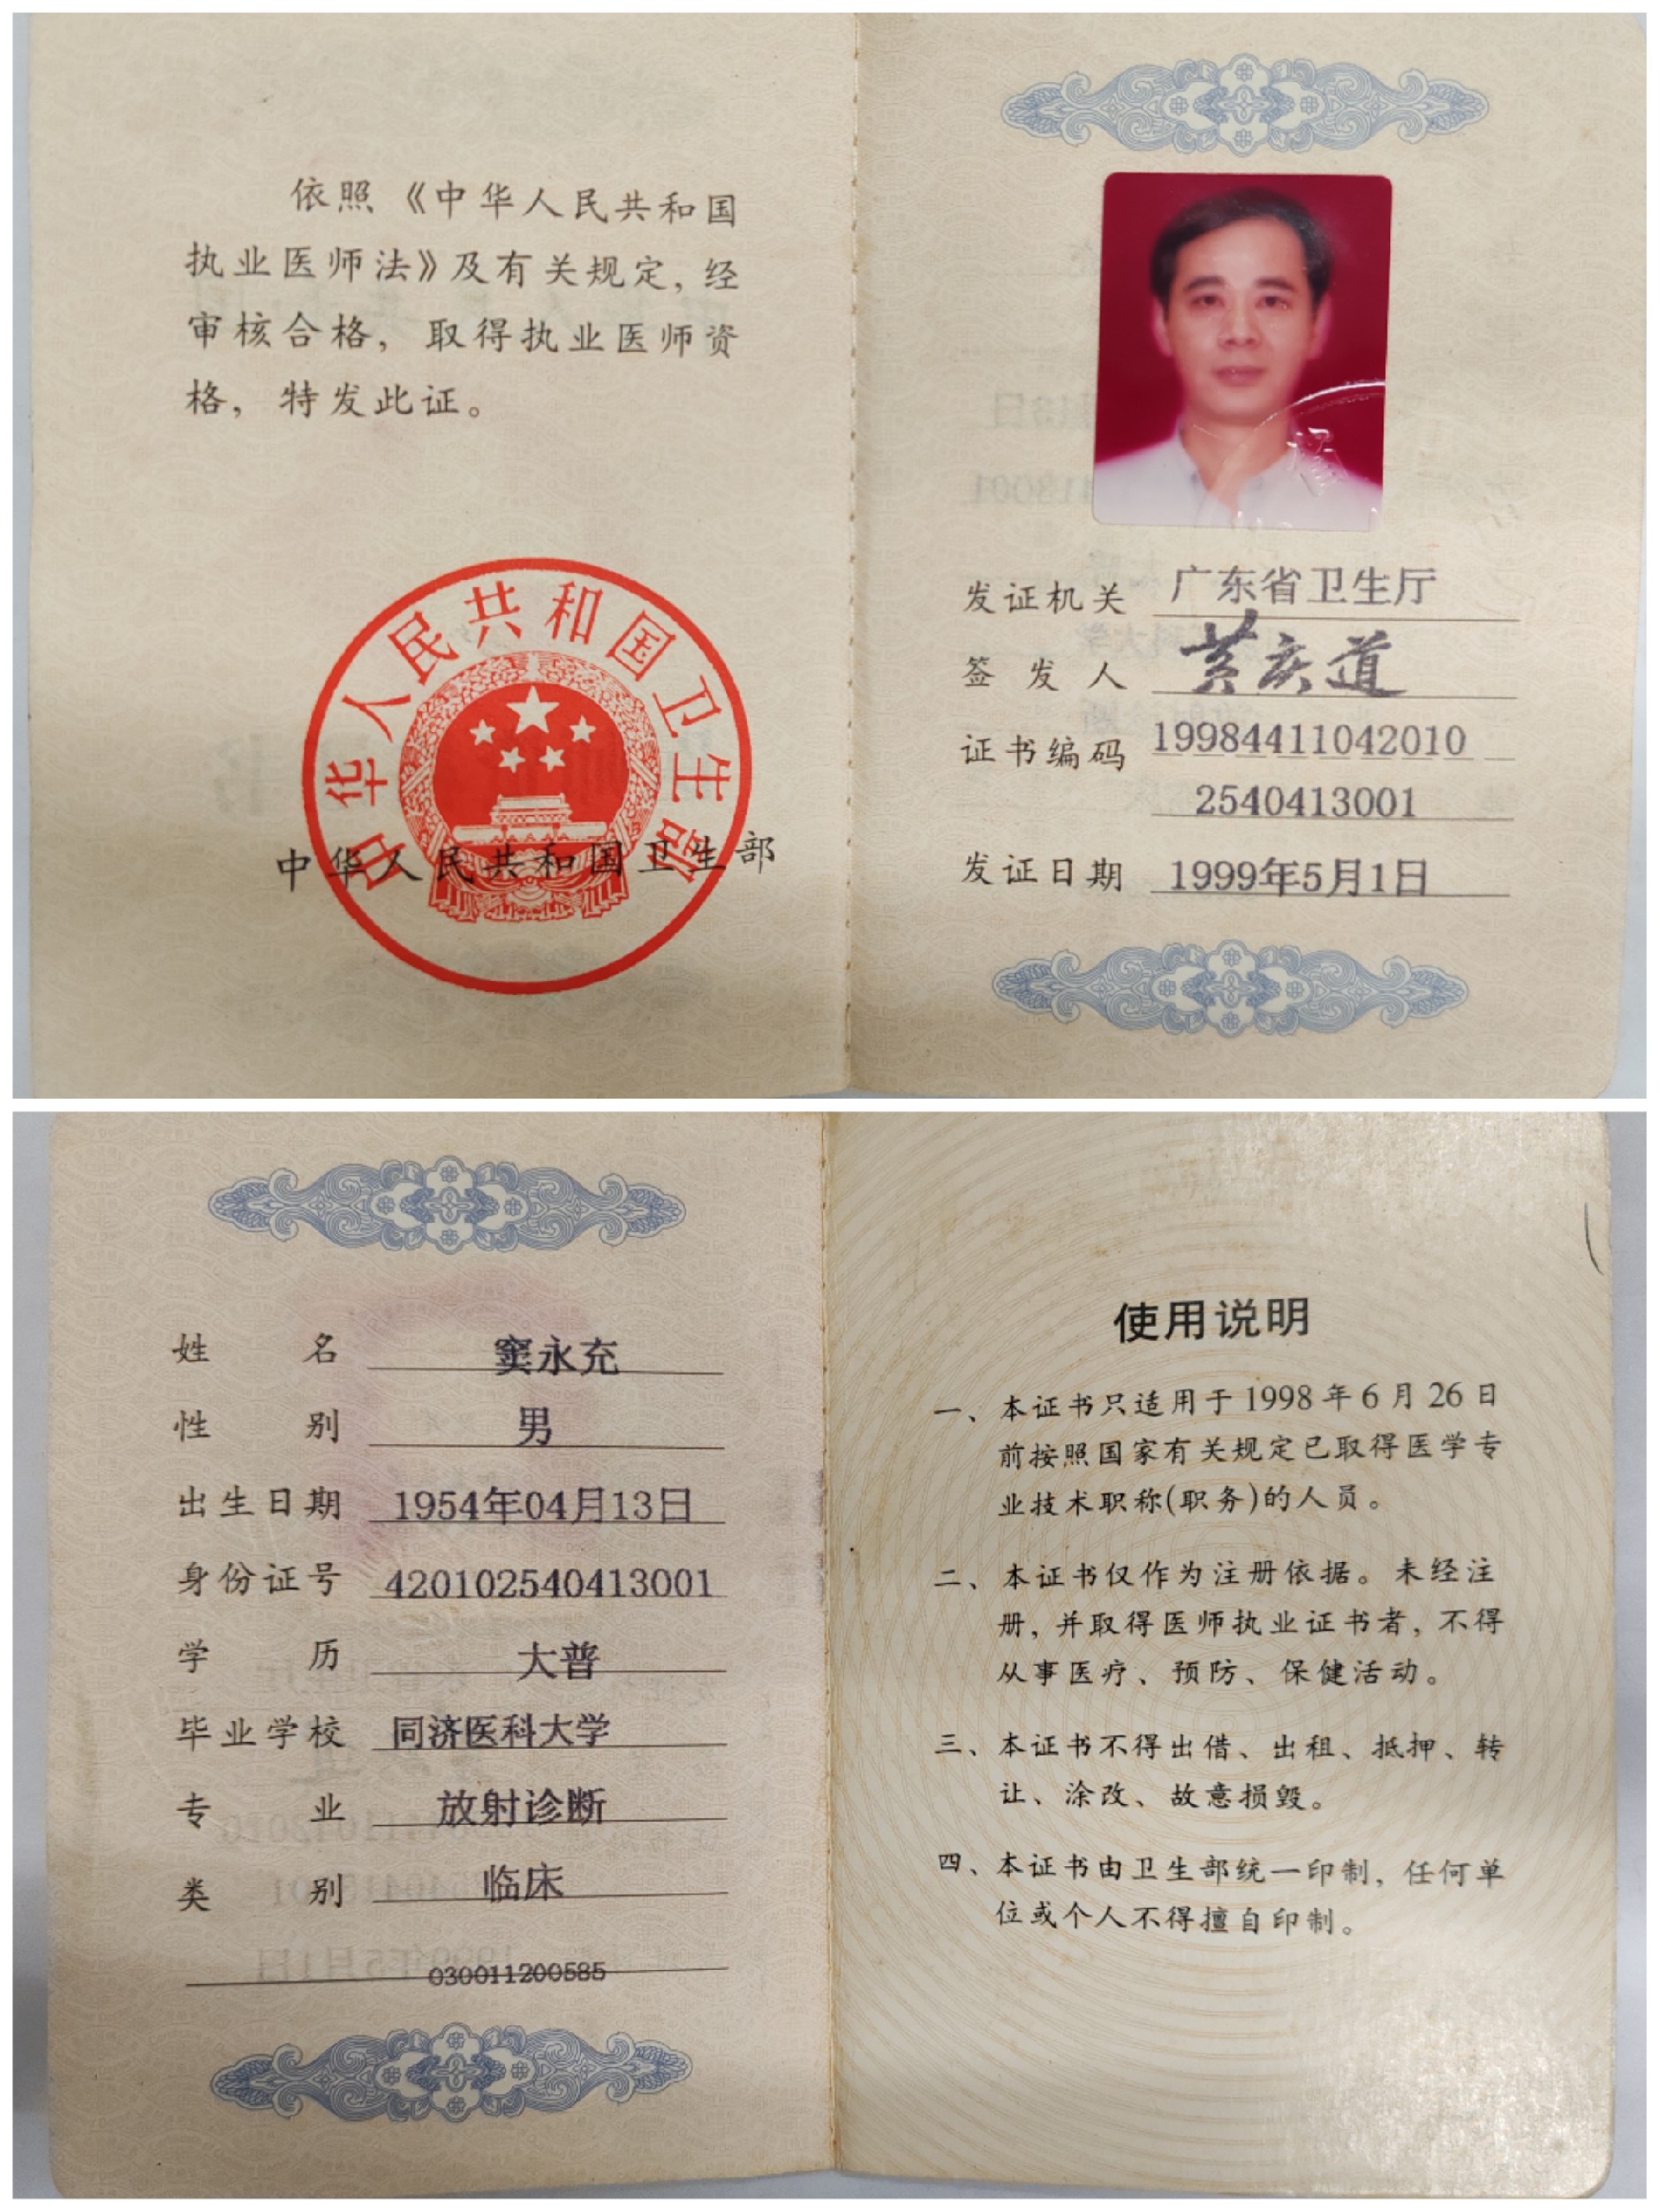 依照《中华人民共和国
执业医师法》及有关规定，经
审核合格，取得执业医师资
格，特发此证。
中华人民共和国卫生部
中华人民共和国卫生部
发证机关 广东省卫生厅
签发人 黄庆道
证书编码 19984411042010
2540413001
发证日期 1999年5月1日
姓名 窦永充
性别 男
出生日期 1954年04月13日
身份证号 420102540413001
学历 大普
毕业学校 同济医科大学
专业 放射诊断
类别 临床
030011200585
使用说明
一、本证书只适用于1998年6月26日
前按照国家有关规定已取得医学专
业技术职称(职务)的人员。
二、本证书仅作为注册依据。未经注
册，并取得医师执业证书者，不得
从事医疗、预防、保健活动。
三、本证书不得出借、出租、抵押、转
让、涂改、故意损毁。
四、本证书由卫生部统一印制，任何单
位或个人不得擅自印制。